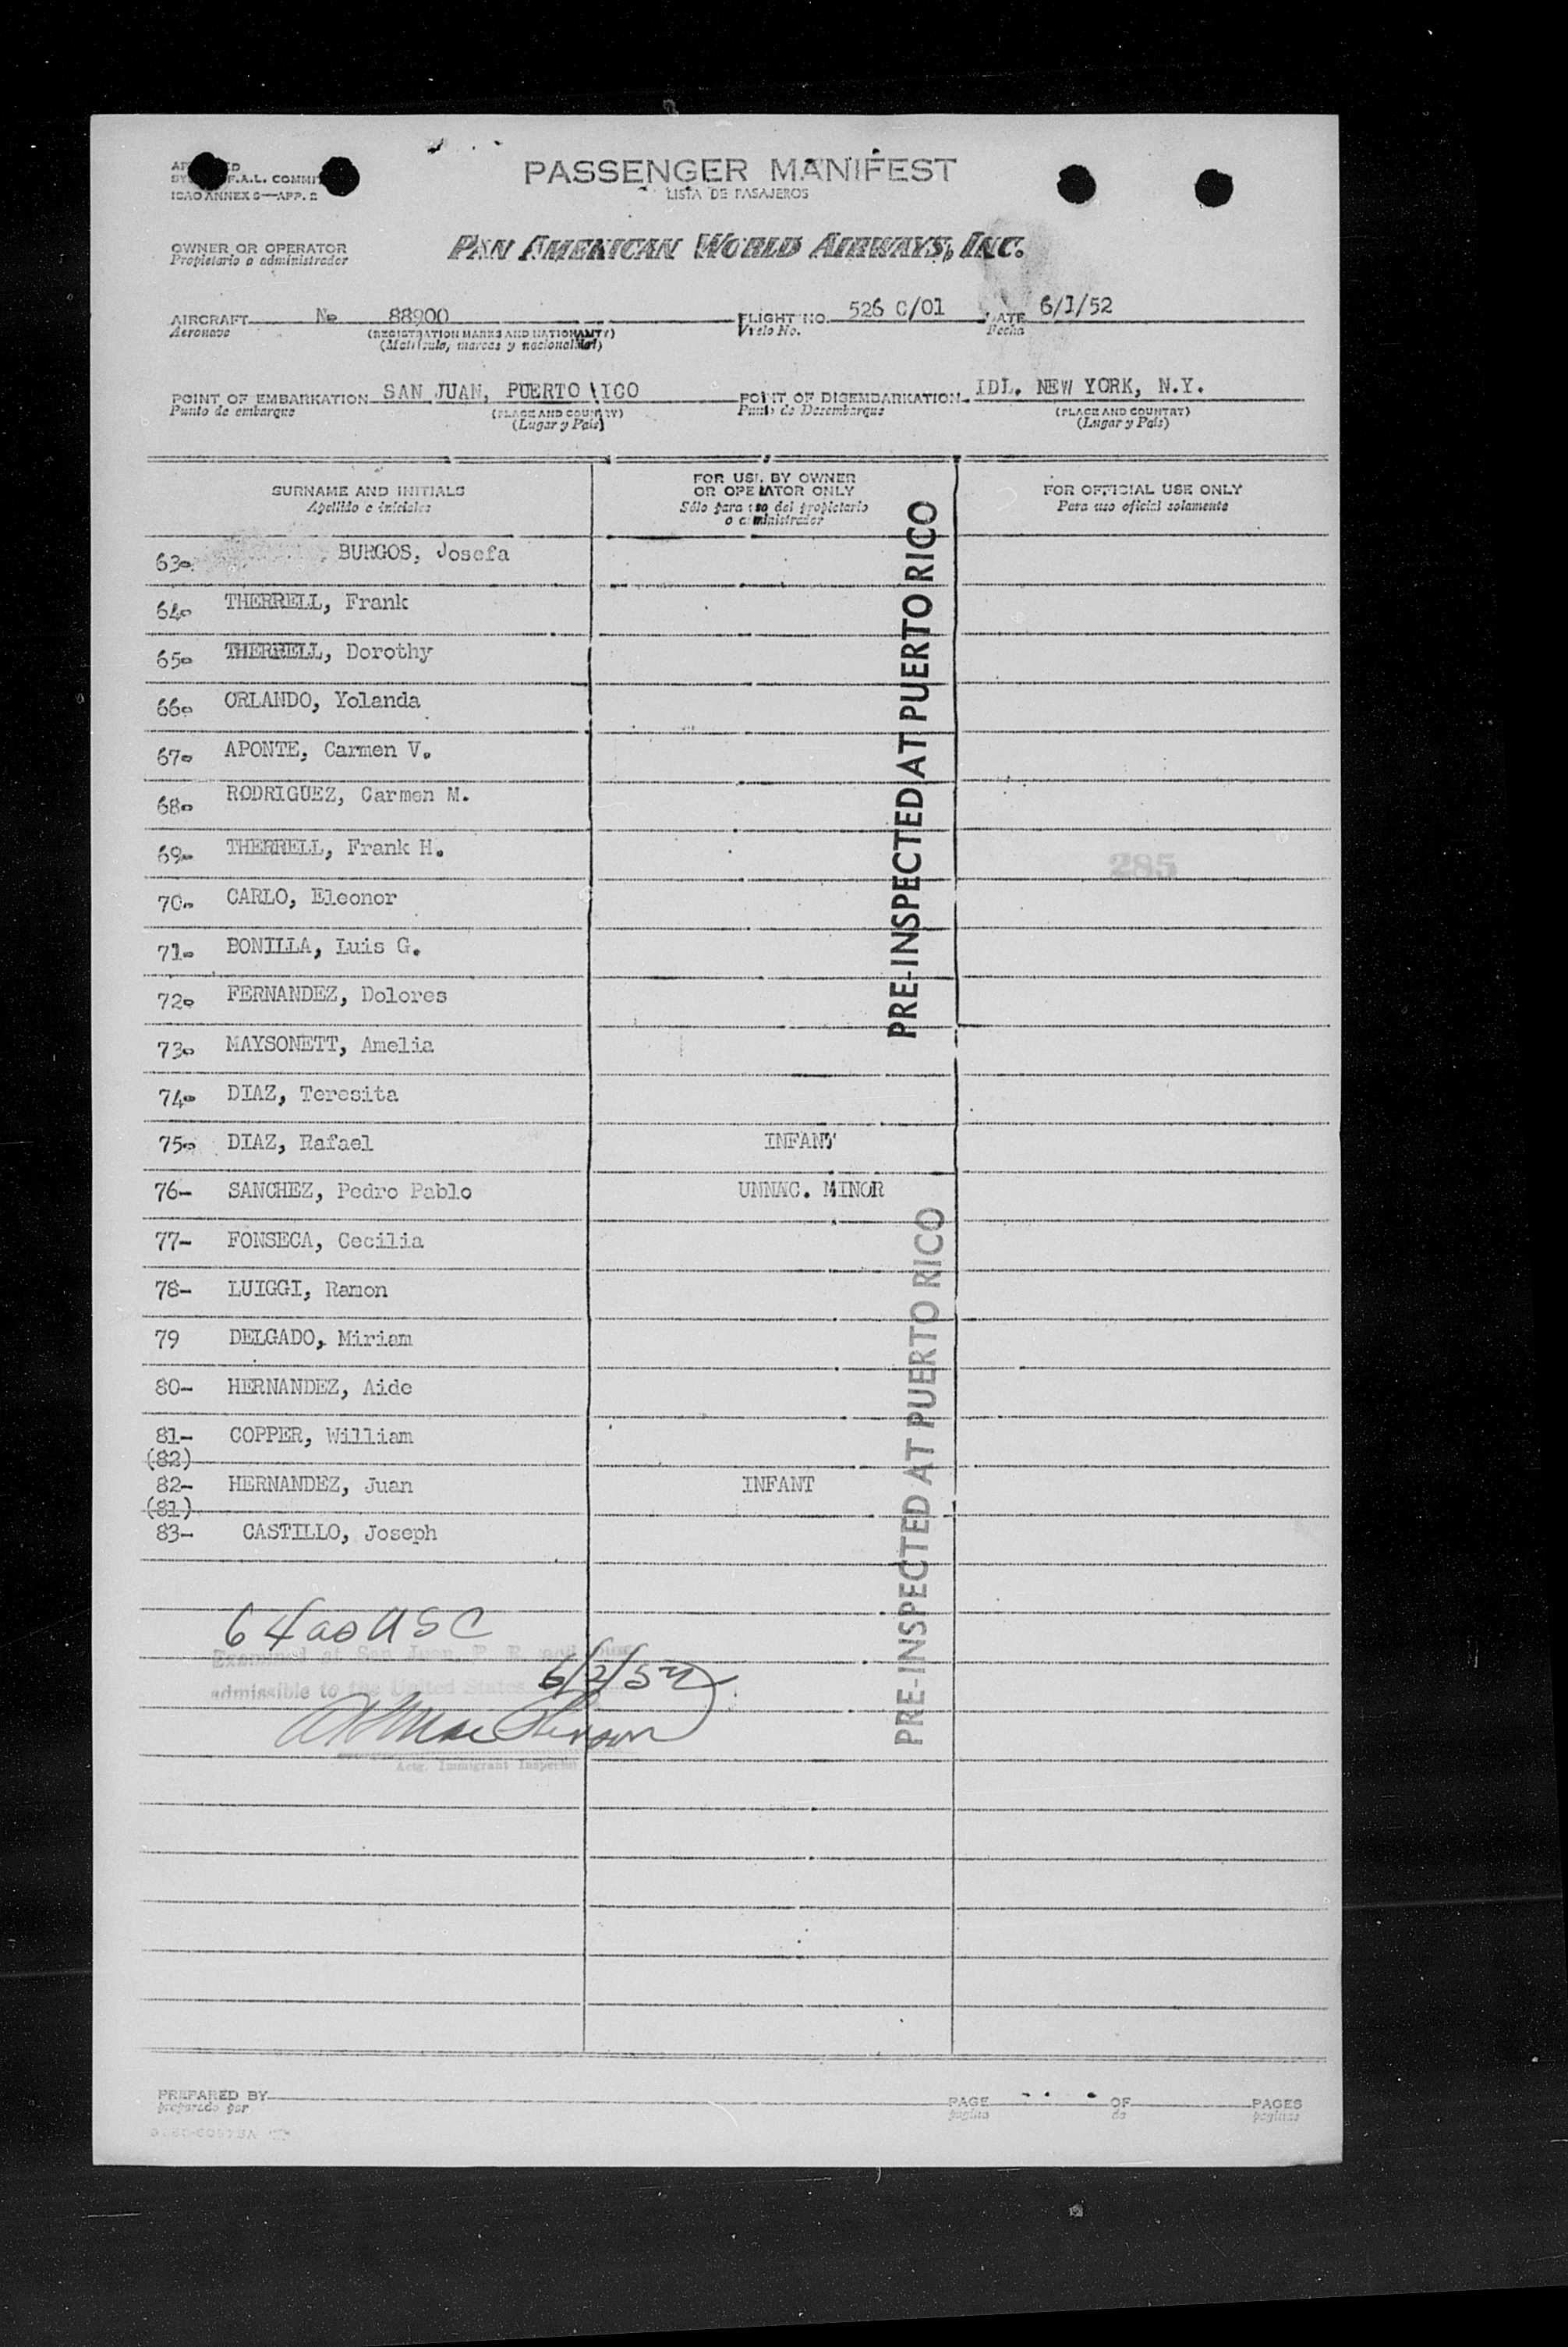 PASSENGER MANIFEST
LISTA DE PASAJEROS
F.A.L. COMMI
ICAO ANNEX 9—APP. 2
OWNER OR OPERATOR
Propietario o administrador
PAN AMERICAN WORLD AIRWAYS, INC.
AIRCRAFT No 88900 FLIGHT NO. 526 C/01 DATE 6/1/52
Aeronave (REGISTRATION MARKS AND NATIONALITY) Vuelo No. Fecha
(Matricula, marcas y nacionalidad)
POINT OF EMBARKATION SAN JUAN, PUERTO RICO POINT OF DISEMBARKATION IDL. NEW YORK, N.Y.
Punto de embarque (PLACE AND COUNTRY) Punto de Desembarque (PLACE AND COUNTRY)
(Lugar y Pais) (Lugar y Pais)
SURNAME AND INITIALS FOR USE BY OWNER OR OPERATOR ONLY FOR OFFICIAL USE ONLY
Apellido e iniciales Sólo para uso del propietario o administrador Para uso oficial solamente
63- BURGOS, Josefa
64- THERRELL, Frank
65- THERRELL, Dorothy
66- ORLANDO, Yolanda
67- APONTE, Carmen V.
68- RODRIGUEZ, Carmen M.
69- THERRELL, Frank H.
285
70- CARLO, Eleonor
71- BONILLA, Luis G.
72- FERNANDEZ, Dolores
73- MAYSONETT, Amelia
74- DIAZ, Teresita
75- DIAZ, Rafael INFANT
76- SANCHEZ, Pedro Pablo UNNAC. MINOR
77- FONSECA, Cecilia
78- LUIGGI, Ramon
79 DELGADO, Miriam
80- HERNANDEZ, Aide
81- COPPER, William
(82)
82- HERNANDEZ, Juan INFANT
(81)
83- CASTILLO, Joseph
PRE-INSPECTED AT PUERTO RICO
PRE-INSPECTED AT PUERTO RICO
64 as USC
Examined at San Juan, P. R. and found
admissible to the United States 6/2/52
Actg. Immigrant Inspector
PREPARED BY PAGE OF PAGES
preparado por pagina de paginas